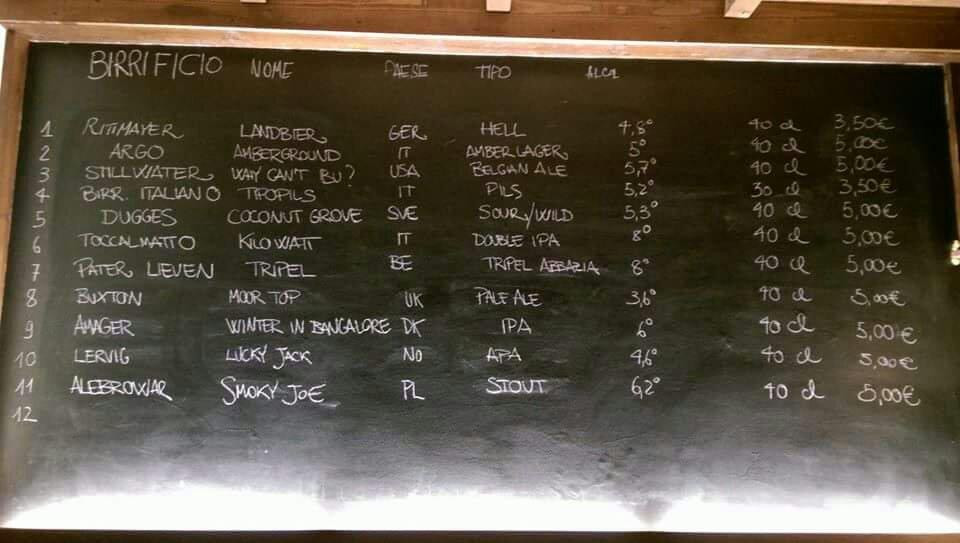 BIRRIFICIO NOME PAESE TIPO ALCOL
1 RITTMAYER LANDBIER GER HELL 4,8° 40 cl 3,50€
2 ARGO AMBERGROUND IT AMBER LAGER 5° 40 cl 5,00€
3 STILLWATER WHY CAN'T BU? USA BELGIAN ALE 5,7° 40 cl 5,00€
4 BIRR. ITALIANO TIPOPILS IT PILS 5,2° 30 cl 3,50€
5 DUGGES COCONUT GROVE SVE SOUR/WILD 5,3° 40 cl 5,00€
6 TOCCALMATTO KILOWATT IT DOUBLE IPA 8° 40 cl 5,00€
7 PATER LIEVEN TRIPEL BE TRIPEL ABBAZIA 8° 40 cl 5,00€
8 BUXTON MOOR TOP UK PALE ALE 3,6° 40 cl 5,00€
9 AMAGER WINTER IN BANGALORE DK IPA 6° 40 cl 5,00€
10 LERVIG LUCKY JACK NO APA 4,6° 40 cl 5,00€
11 ALEBROWAR SMOKY JOE PL STOUT 6,2° 40 cl 5,00€
12